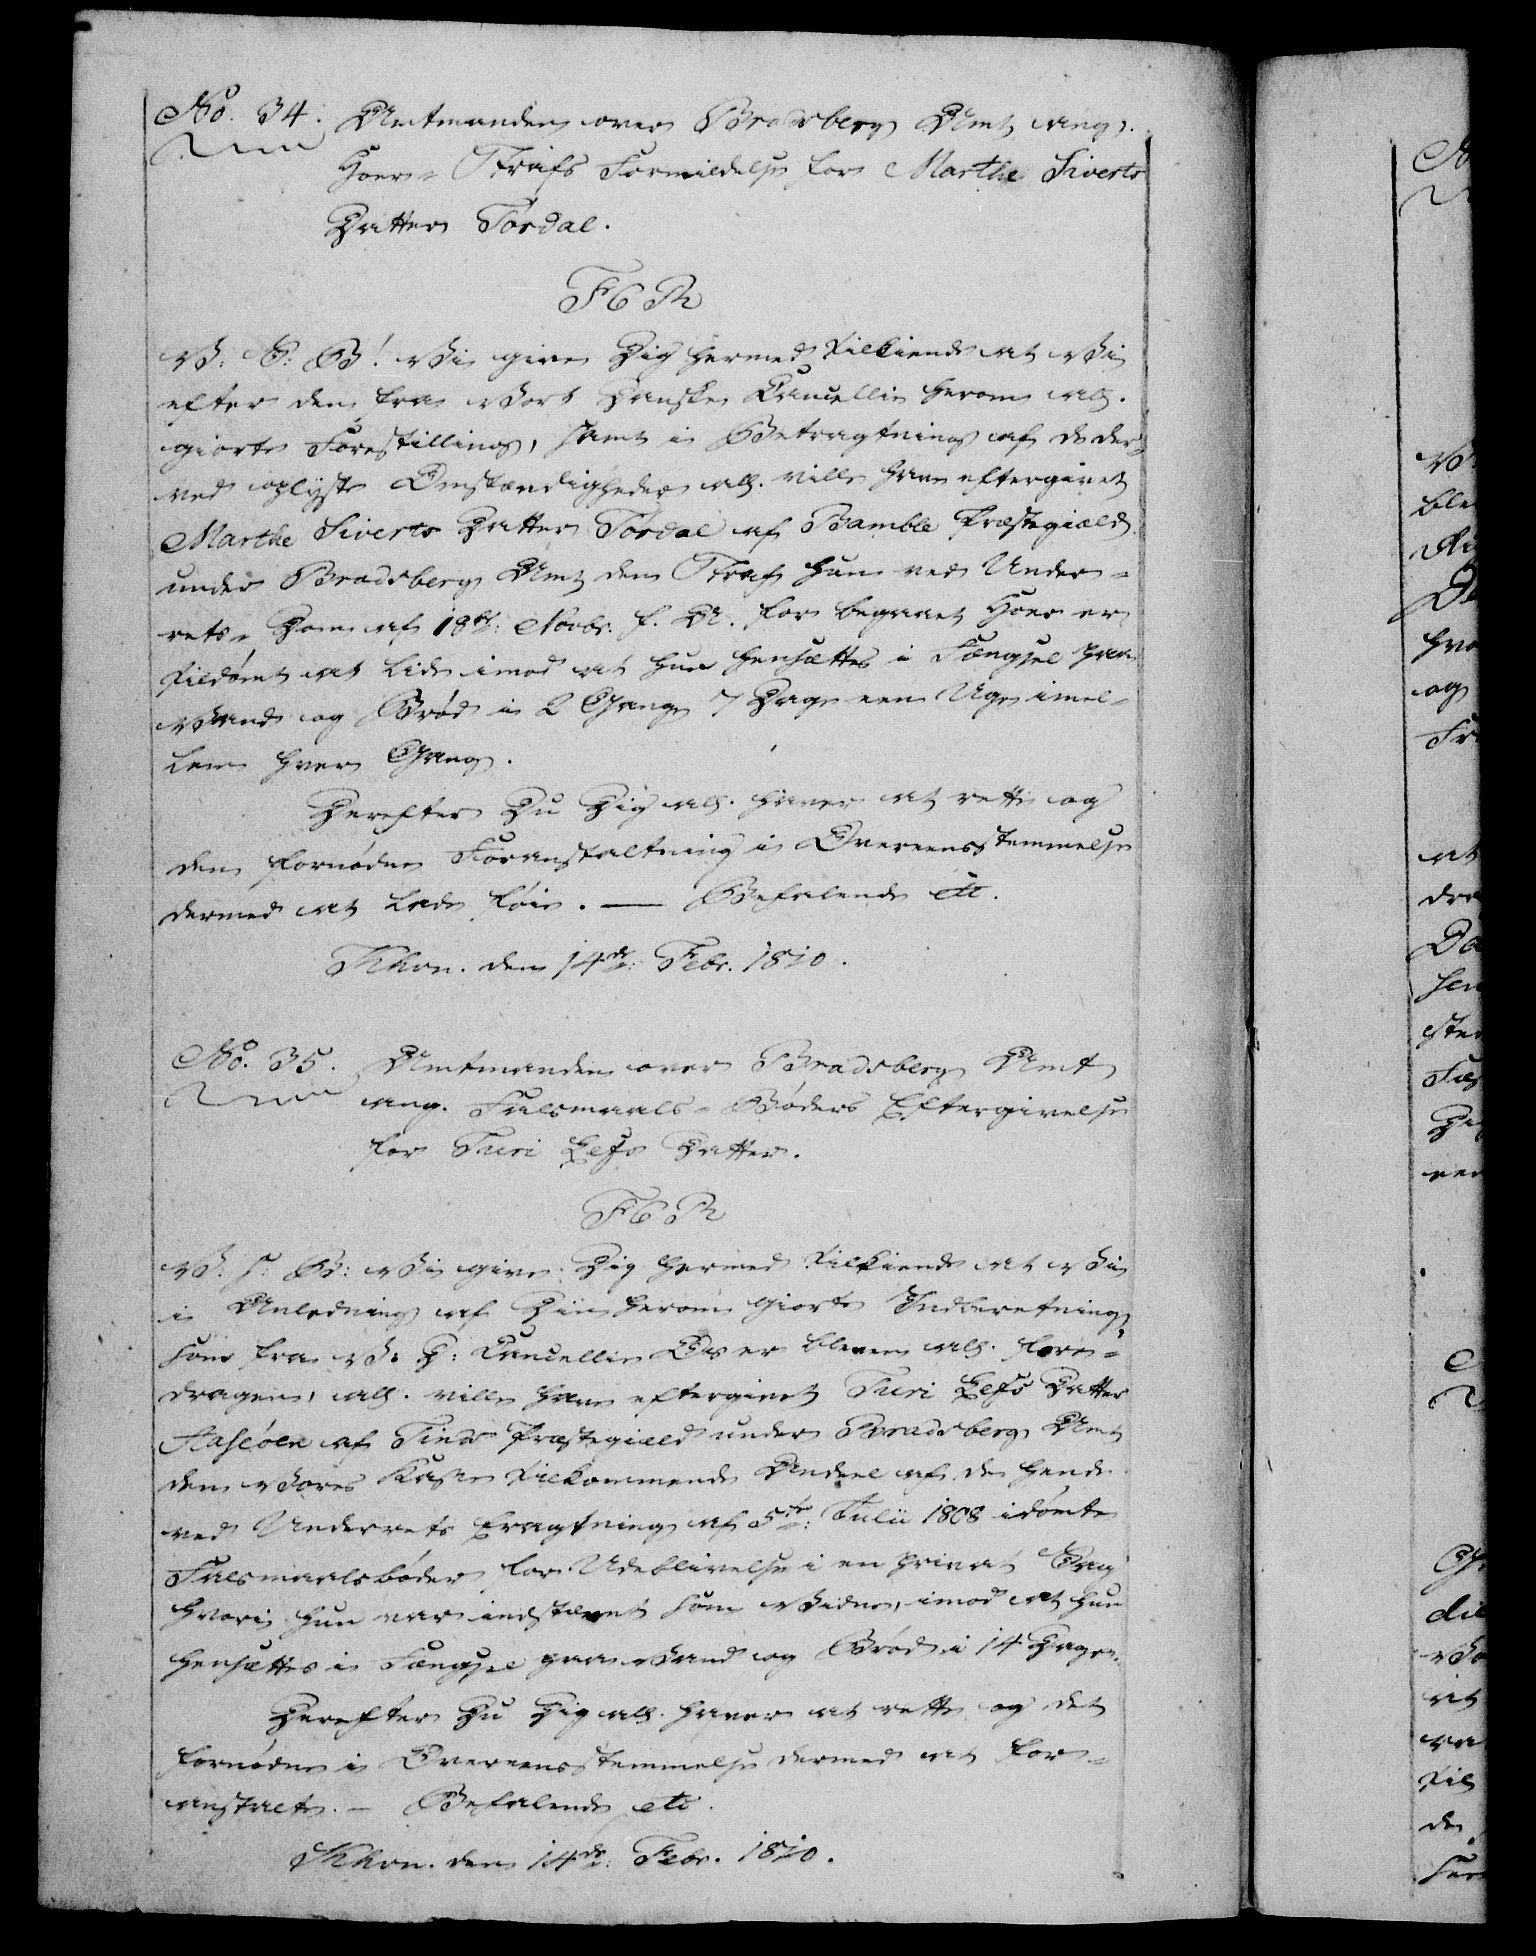 No. 34. Amtmanden over Bradsberg Amt ang.
Hoer-Strafs Formildelse for Marthe Siverts
Datter Tordal.
F6R
V. S. G. Vi give Dig hermed tilkiende at Vi
efter den fra Vort Danske Cancellie herom all.
giorte Forestilling, samt i Betragtning af de der-
ved oplyste Omstændigheder all. ville have eftergivet
Marthe Siverts Datter Tordal af Bamble Præstegield
under Bradsberg Amt den Straf hun ved Under-
rets-Dom af 18de Novbr. f. A. for begaaet Hoer er
tildømt at lide imod at hun hensættes i Fængsel paa
Vand og Brød i 2 Gange 7 Dage een Uge imel-
lem hver Gang.
Derefter Du Dig all. haver at rette og
den fornødne Foranstaltning i Overeensstemmelse
dermed at lade føie. — Befalende etc.
Khvn. den 14de: Febr. 1810.
No. 35. Amtmanden over Bradsberg Amt
ang. Falsmaals-Bøders Eftergivelse
for Turi Leifs Datter.
F6R
V. S. G: Vi give Dig hermed tilkiende at Vi
i Anledning af Din herom giorte Indberetning,
som fra V. D: Cancellie Os er bleven all. fore-
dragen, all. ville have eftergivet Turi Leifs Datter
af Tinds Præstegield under Bradsberg Amt
den Vores Kasse tilkommende Andeel af de hende
ved Underrets Eragtning af 5te: Julii 1808 idømte
Falsmaalsbøder for Udeblivelse i en privat Sag
hvori hun var indstævnt som Vidne, imod at hun
hensættes i Fængsel paa Vand og Brød i 14 Dage.
Derefter Du Dig all. haver at rette og det
fornødne i Overeensstemmelse dermed at for-
anstalte. — Befalende etc.
Khvn. den 14de: Febr. 1810.